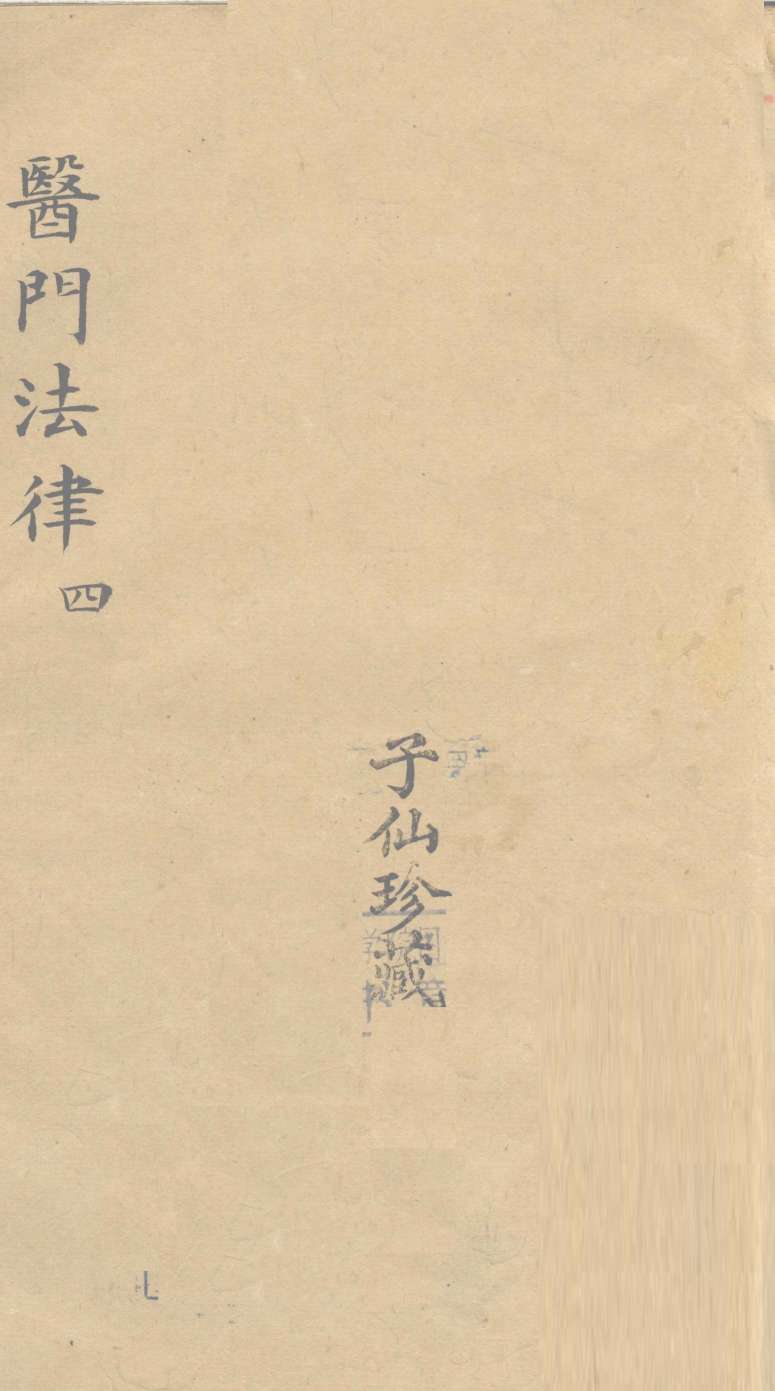 子仙珍藏
醫門法律 四